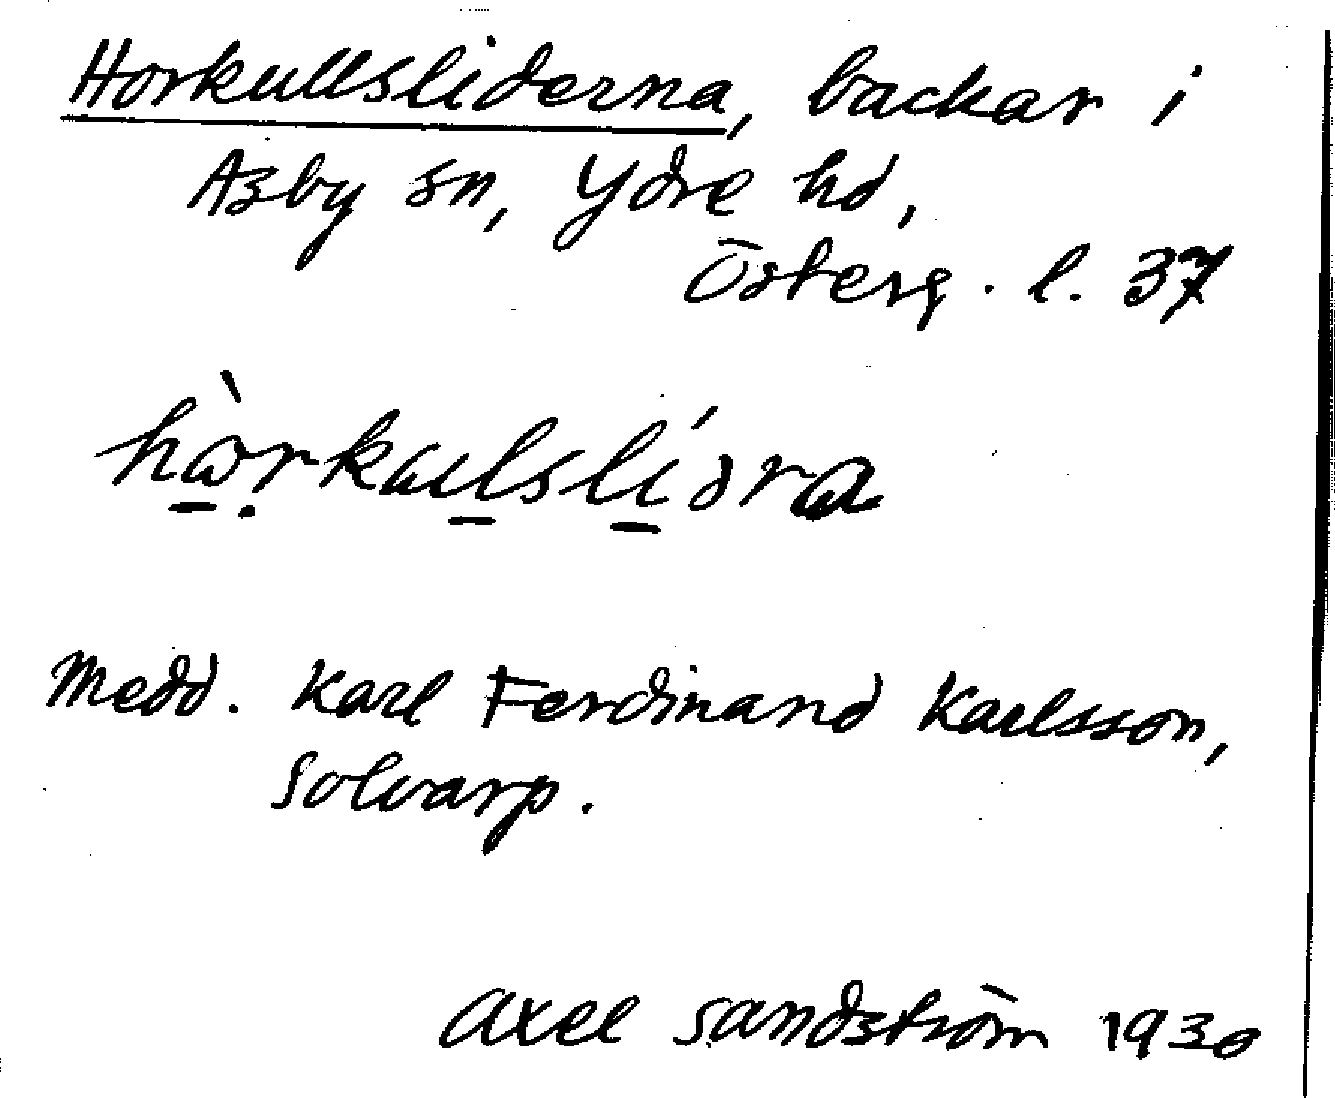 Horkullsliderna, backar i
Asby sn, Ydre hd,
Österg. l. 37
hàrkaulslídra
Medd. Karl Ferdinand Karlsson,
Solvarp.
Axel Sandström 1930